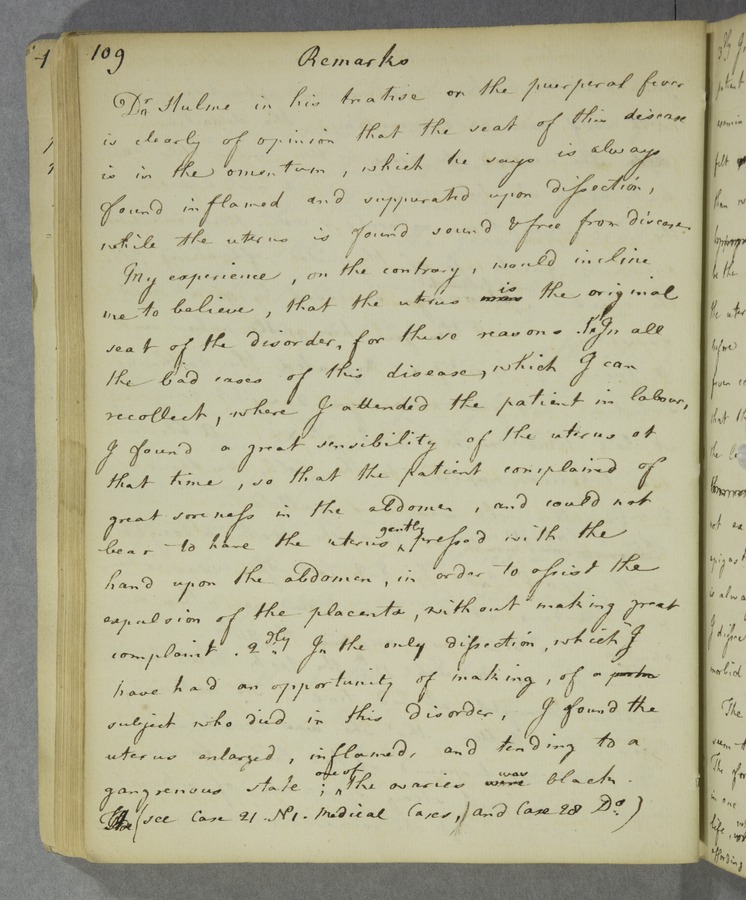 109 Remarks
Dr. Hulme in his treatise on the puerperal fever
is clearly of opinion that the seat of this disease
is in the omentum, which he says is always
found inflamed and suppurated upon dissection,
while the uterus is found sound & free from disease.
My experience, on the contrary, would incline
me to believe, that the uterus is the original
seat of the disorder, for these reasons. 1st. In all
the bad cases of this disease, which I can
recollect, where I attended the patient in labour,
I found a great sensibility of the uterus at
that time, so that the patient complained of
great soreness in the abdomen, and could not
bear to have the uterus gently pressed with the
hand upon the abdomen, in order to assist the
expulsion of the placenta, without making great
complaint. 2dly In the only dissection, which I
have had an opportunity of making, of a
subject who died in this disorder, I found the
uterus enlarged, inflamed, and tending to a
gangrenous state; one of the ovaries was black.
(see Case 21. No1. Medical Cases,) and Case 28 Do.)